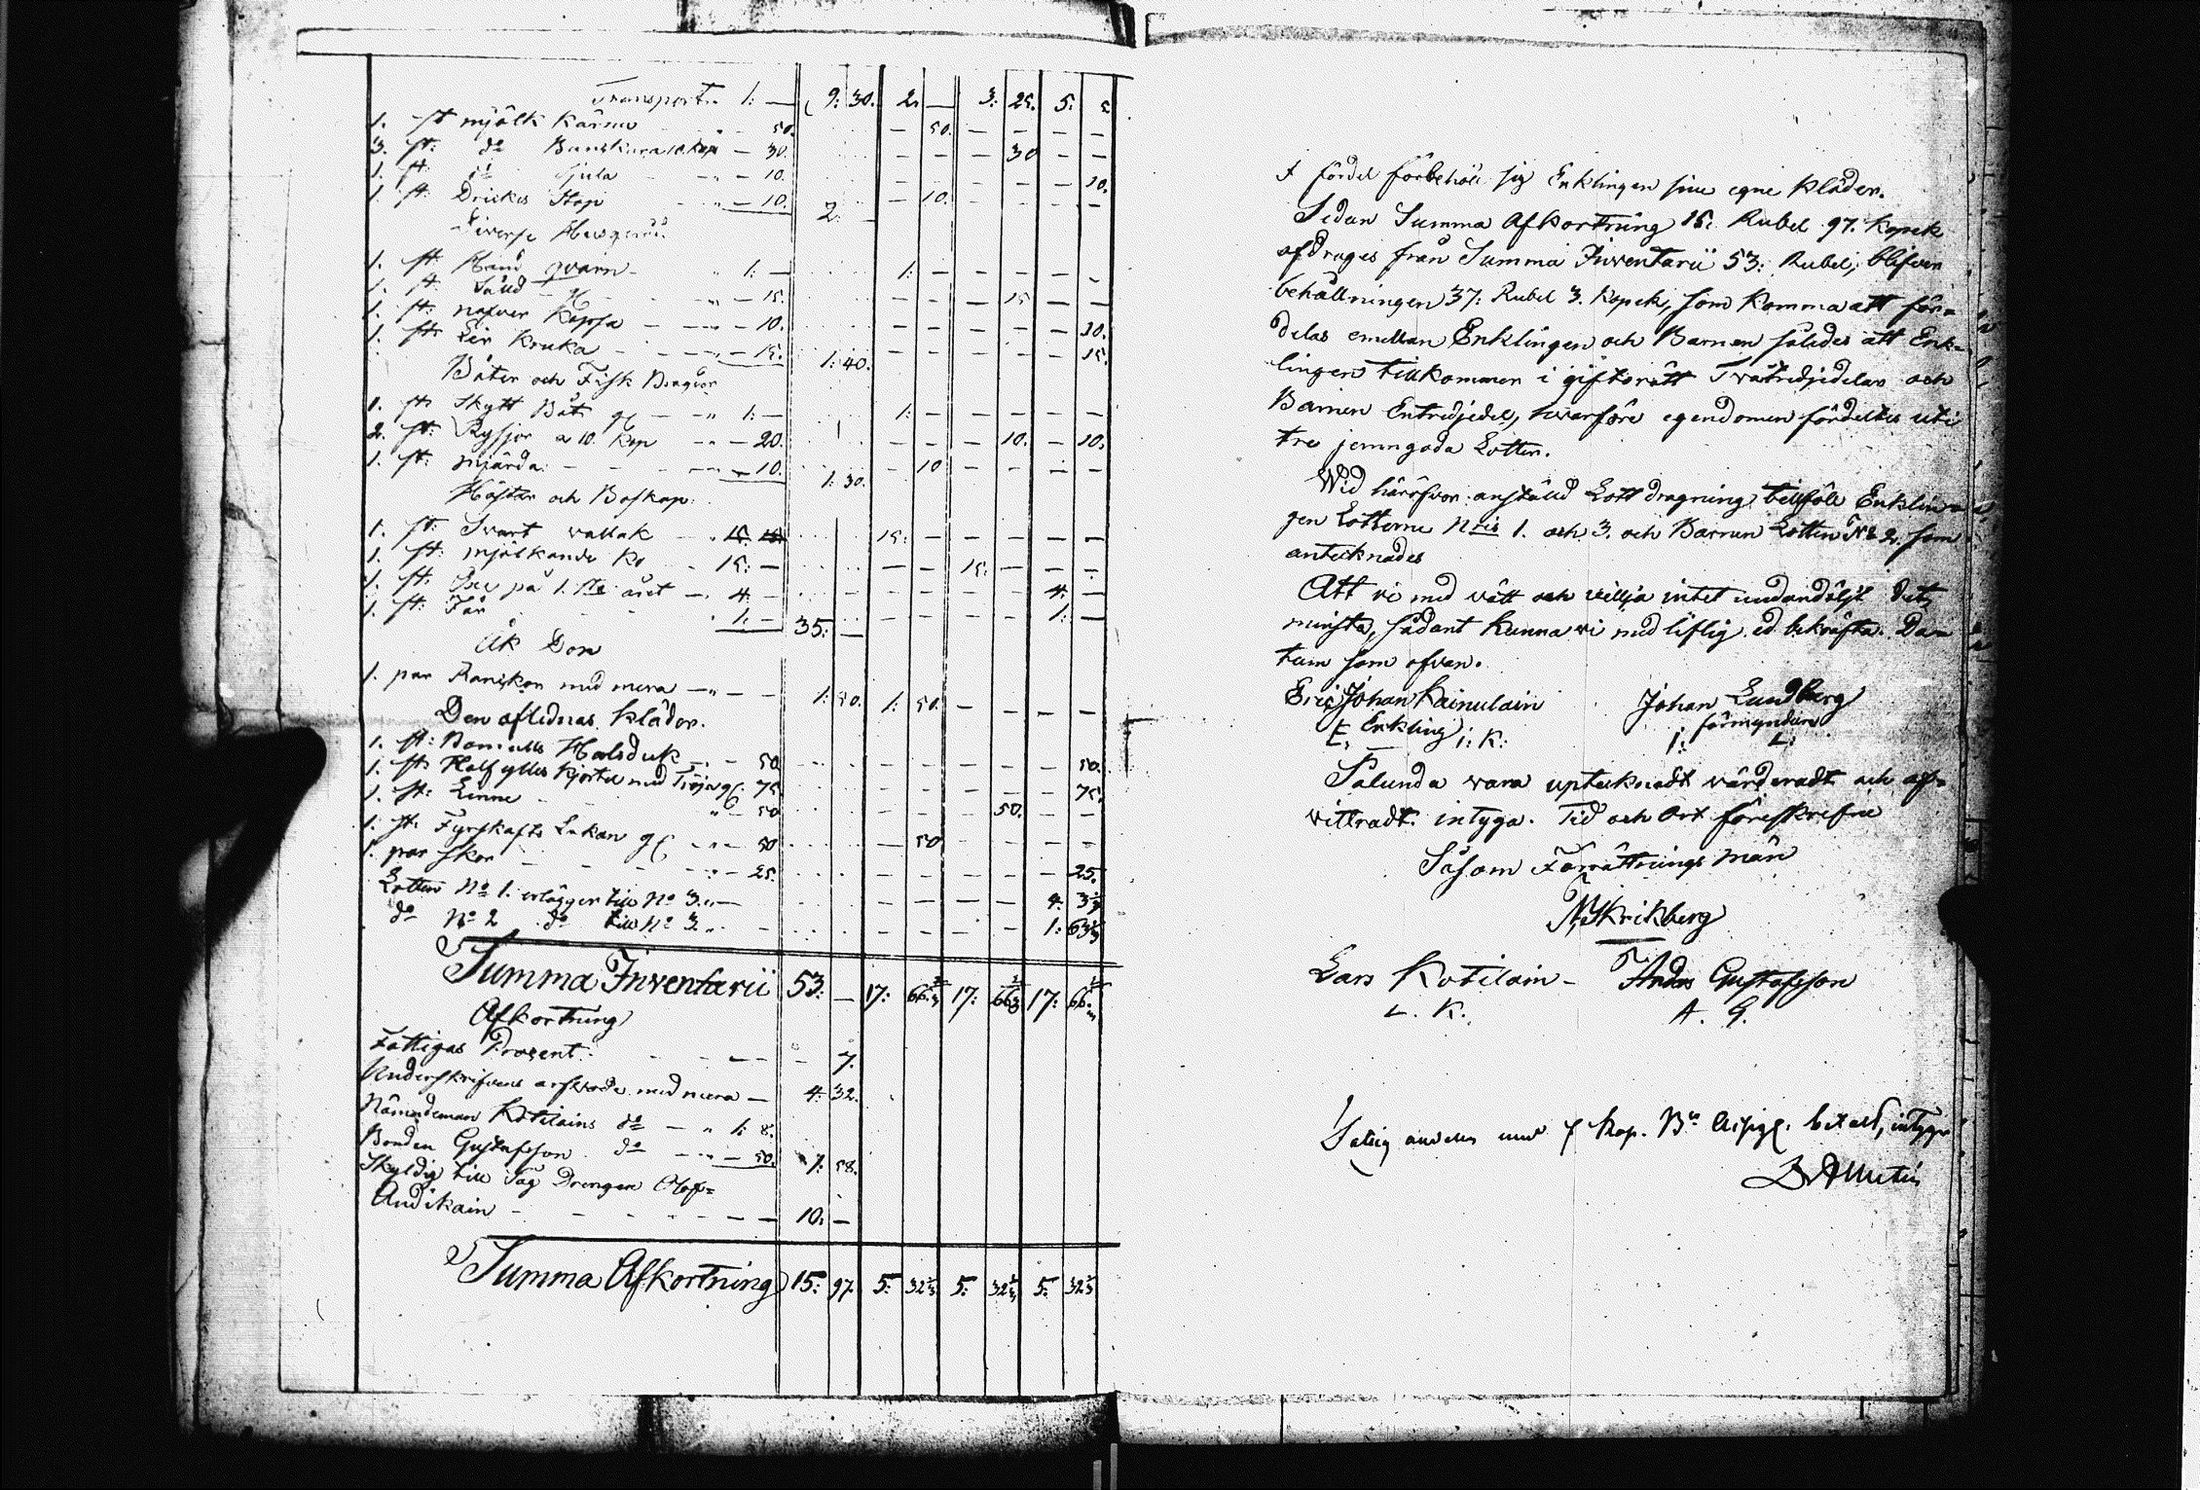 Transport. 1: — 9: 30. 2. — 3: 25. 5. 5
1. st mjölk Kärna - - 50. — 50. — — — —
3. st: do Bunckar a 10. kop — 30. — — — 30 — —
1. st. do Gjula - - 10. — — — — — 10.
1. st. Drickes Stop - - 10. 2. — — 10. — — — —
Diverse Husgeråd.
1. st Hand qvarn - 1: — 1: — — — — —
1. st. Såll g - 15. — — — 15 — —
1. st. näfver Kopsa — — 10. — — — — — 10.
1. st. Ler Kruka - - — 15. 1: 40. — — — — — 15.
Båter och Fisk Bragder
1. st. Skytt Båt g — 1: — 1: — — — — —
2. st: Rysjor a 10. Kop — 20. — — — 10. — 10.
1. st: mjärda. - - — 10. 1: 30. — 10 — — — —
Hästar och Boskap.
1. st. Svart vallak - 15. 15: — — — — —
1. st: mjölkande Ko - 15: — — — 15: — — —
1. st. Qvi på 1.sta året — 4: — — — — — 4. —
1. st: Får 1: — 35: — — — — — 1: —
Åk Don
1. par Ranskor med mera — — 1: 50. 1: 50. — — — —
Den aflidnas Kläder.
1. st: Bomulls Halsduk - — 50 — — — — — 50.
1. st: Half ylles Kjortel med Tröja g. 75 — — — — — 75.
1. st: Linne - 50 — — — 50. — —
1. st. Fyrskafts Lakan g - 50 — 50 — — — —
1. par skor - - - 25. — — — — — 25.
Lotten No 1. erlägger till No 3. — — — — — 4. 3 1/3
do No 2 do till No 3. — — — — — 1: 63 1/3
Summa Inventarii 53: — 17: 66 2/3 17: 66 2/3 17: 66 2/3
Afkortning
Fattigas Procent. - - — — 7.
Underskrifvens arfvode med mera — 4. 32.
Nämndeman Kotilains do — 1: 8.
Bonden Gustafsson do — 50. 1: 58.
Skyldig till Tag Drengen Olof
Audikain - - - — — 10. —
Summa Afkortning 15: 97. 5: 32 1/3 5: 32 1/3 5: 32 1/3
I fördel förbehöll sig Enklingen sine egne Kläder.
Sedan Summa Afkortning 15: Rubel 97. Kopek
afdrages från Summa Inventarii 53: Rubel, blifver
behållningen 37: Rubel 3. Kopek, som Komma att för=
delas emellan Enklingen och Barnen således att Enk=
lingen tillkommer i giftorätt Tvåtredjedelar och
Barnen Entredjedel, hvarföre egendomen fördeltes uti
tre jemngoda Lotter.
Wid häröfver anstäld Lottdragning tillföll Enklin=
gen Lotterne Nris 1. och 3. och Barnen Lotten No 2. som
antecknades
Att vi med vett och villja intet undandöljt det
minsta, sådant Kunna vi med liflig ed bekräfta. Da=
tum som ofvan.
Eric Johan Kainulain Johan Lundberg
Enkling förmyndare
E. I: K: I: L:
Sålunda vara uptecknadt värderadt och af=
vittradt intyga. Tid och Ort föreskrefne
Såsom Förrättnings män
N Skrikberg
Lars Kotilain - Anders Gustafsson
L. K. A. G.
Fattig andelen med 7 Kop. Bco Assign. betald, intygar